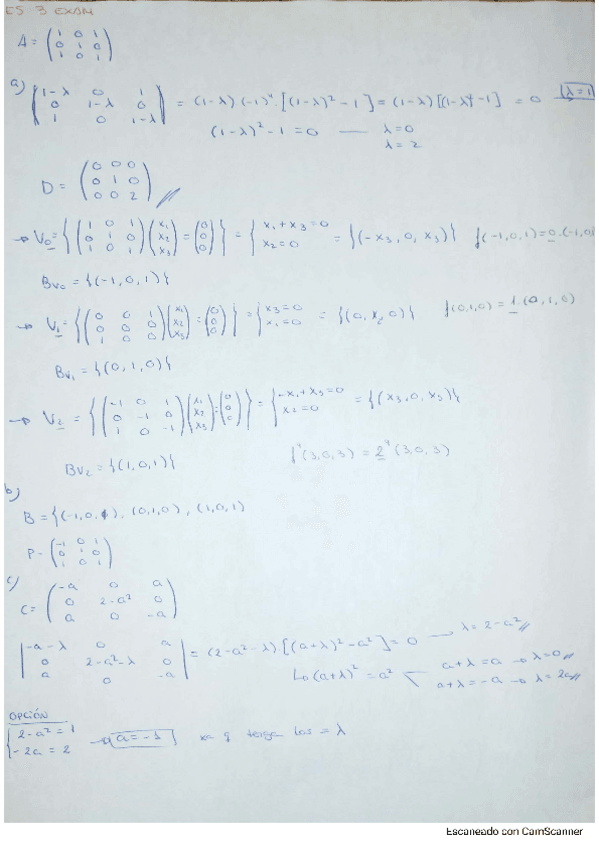 ES 3 EXAM
A = (1 0 1 / 0 1 0 / 1 0 1)
a) |1-λ 0 1 / 0 1-λ 0 / 1 0 1-λ| = (1-λ)(-1)⁴·[(1-λ)²-1] = (1-λ)[(1-λ)²-1] = 0 → λ=1
(1-λ)²-1=0 — λ=0
λ=2
D = (0 0 0 / 0 1 0 / 0 0 2)
→ V₀ = {(1 0 1 / 0 1 0 / 1 0 1)(x₁ / x₂ / x₃) = (0 / 0 / 0)} = {x₁+x₃=0 / x₂=0 = {(-x₃, 0, x₃)} f(-1,0,1)=0·(-1,0
Bv₀ = {(-1,0,1)}
→ V₁ = {(0 0 1 / 0 0 0 / 1 0 0)(x₁ / x₂ / x₃) = (0 / 0 / 0)} = {x₃=0 / x₁=0 = {(0, x₂, 0)} f(0,1,0) = 1·(0,1,0)
Bv₁ = {(0,1,0)}
→ V₂ = {(-1 0 1 / 0 -1 0 / 1 0 -1)(x₁ / x₂ / x₃) = (0 / 0 / 0)} = {-x₁+x₃=0 / x₂=0 = {(x₃, 0, x₃)}
f⁴(3,0,3) = 2⁴(3,0,3)
Bv₂ = {(1,0,1)}
b)
B = {(-1,0,1), (0,1,0), (1,0,1)
P = (-1 0 1 / 0 1 0 / 1 0 1)
c)
C = (-a 0 a / 0 2-a² 0 / a 0 -a)
|-a-λ 0 a / 0 2-a²-λ 0 / a 0 -a| = (2-a²-λ)[(a+λ)²-a²] = 0 → λ=2-a²
↳ (a+λ)²=a² a+λ=a → λ=0
a+λ=-a → λ=2a
OPCIÓN
{2-a²=1 / -2a=2 → a=-1 xa q tenga los = λ
Escaneado con CamScanner